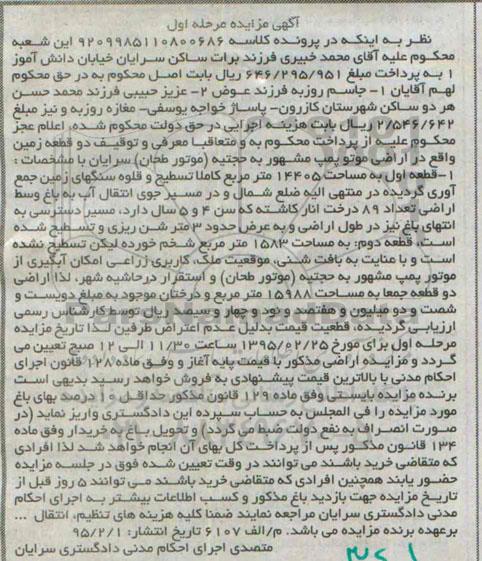 آگهی مزایده مرحله اول
نظر به اینکه در پرونده کلاسه ۹۲۰۹۹۸۵۱۱۰۸۰۰۶۸۶ این شعبه
محکوم علیه آقای محمد خبیری فرزند برات ساکن سرایان خیابان دانش آموز
۱ به پرداخت مبلغ ۶۴۶/۲۹۵/۹۵۱ ریال بابت اصل محکوم به در حق محکوم
لهم آقایان ۱- جاسم روزبه فرزند عوض ۲- عزیز حبیبی فرزند محمد حسن
هر دو ساکن شهرستان کازرون- پاساژ خواجه یوسفی- مغازه روزبه و نیز مبلغ
۲/۵۴۶/۶۴۲ ریال بابت هزینه اجرایی در حق دولت محکوم شده، اعلام عجز
محکوم علیه از پرداخت محکوم به و متعاقبا معرفی و توقیف دو قطعه زمین
واقع در اراضی موتو پمپ مشهور به حجتیه (موتور طحان) سرایان با مشخصات :
۱-قطعه اول به مساحت ۱۴۴۰۵ متر مربع کاملا تسطیح و قلوه سنگهای زمین جمع
آوری گردیده در منتهی الیه ضلع شمال و در مسیر جوی انتقال آب به باغ وسط
اراضی تعداد ۸۹ درخت انار کاشته که سن ۴ و ۵ سال دارد، مسیر دسترسی به
انتهای باغ نیز در طول اراضی و به عرض حدود ۳ متر شن ریزی و تسطیح شده
است، قطعه دوم: به مساحت ۱۵۸۳ متر مربع شخم خورده لیکن تسطیح نشده
است و با عنایت به بافت شنی، موقعیت ملک، کاربری زراعی امکان آبگیری از
موتور پمپ مشهور به حجتیه (موتور طحان) و استقرار درحاشیه شهر، لذا اراضی
دو قطعه جمعا به مساحت ۱۵۹۸۸ متر مربع و درختان موجود به مبلغ دویست و
شصت و دو میلیون و هفتصد و نود و چهار و سیصد ریال توسط کارشناس رسمی
ارزیابی گردیده، قطعیت قیمت بدلیل عدم اعتراض طرفین لذا تاریخ مزایده
مرحله اول برای مورخ ۱۳۹۵/۰۲/۲۵ ساعت ۱۱/۳۰ الی ۱۲ صبح تعیین می
گردد و مزایده اراضی مذکور با قیمت پایه آغاز و وفق ماده ۱۲۸ قانون اجرای
احکام مدنی با بالاترین قیمت پیشنهادی به فروش خواهد رسید بدیهی است
برنده مزایده بایستی وفق ماده ۱۲۹ قانون مذکور حداقل ۱۰ درصد بهای باغ
مورد مزایده را فی المجلس به حساب سپرده این دادگستری واریز نماید (در
صورت انصراف به نفع دولت ضبط می گردد) و تحویل باغ به خریدار وفق ماده
۱۳۴ قانون مذکور پس از پرداخت کل بهای آن انجام خواهد شد لذا افرادی
که متقاضی خرید باشند می توانند در وقت تعیین شده فوق در جلسه مزایده
حضور یابند همچنین افرادی که متقاضی خرید باشند می توانند ۵ روز قبل از
تاریخ مزایده جهت بازدید باغ مذکور و کسب اطلاعات بیشتر به اجرای احکام
مدنی دادگستری سرایان مراجعه نمایند ضمنا کلیه هزینه های تنظیم، انتقال ...
برعهده برنده مزایده می باشد. م/الف ۶۱۰۷ تاریخ انتشار: ۹۵/۲/۱
متصدی اجرای احکام مدنی دادگستری سرایان